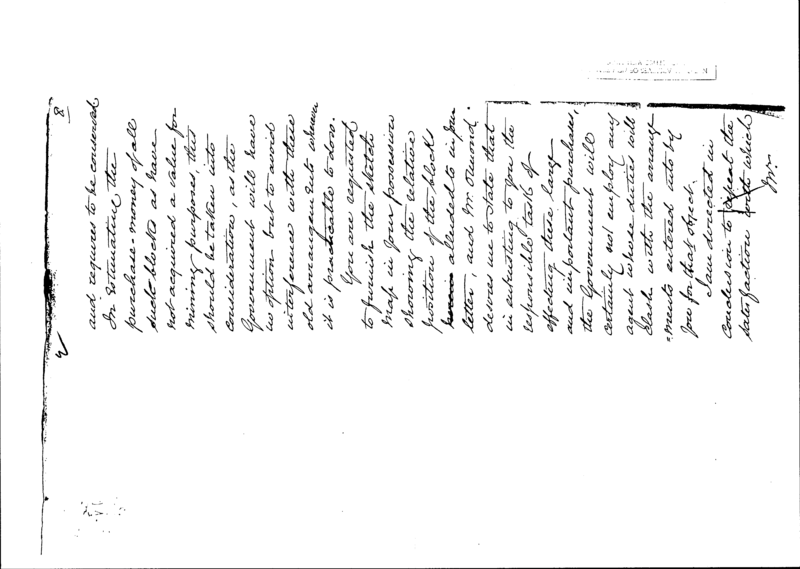 8
and requires to be conserved
In Estimating the
purchase-money of all
such blocks as have
not acquired a value for
mining purposes, this
should be taken into
consideration, as the
Government will have
no option but to avoid
interference with these
old arrangements wherever
it is practicable to do so.
You are requested
to furnish the sketch
map in your possession
showing the relative
position of the blocks
alluded to in your
letter and Mr Ormond.
desires me to state that
in entrusting to you the
responsible task of
effecting these large
and important purchases,
the Government will
certainly not employ any
agent whose duties will
clash with the arrange
=ments entered into by
you for that object.
I am directed in
conclusion to repeat the
satisfaction with which
Mr